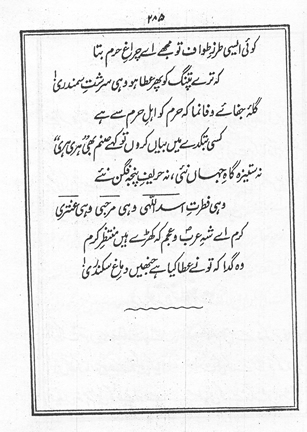 ۲۸۵
کوئی ایسی طرزِ طواف تو مجھے اے چراغِ حرم بتا
کہ ترے پتنگ کو پھر عطا ہو وہی سرشتِ سمندری
گلۂ جفائے وفا نما کہ حرم کو اہلِ حرم سے ہے
کسی بتکدے میں بیاں کروں تو کہے صنم بھی ہری ہری
نہ ستیزہ گاہِ جہاں نئی، نہ حریفِ پنجہ فگن نئے
وہی فطرتِ اسد اللہی وہی مرحبی وہی عنتری
کرم اے شہِ عربؐ و عجم کہ کھڑے ہیں منتظرِ کرم
وہ گدا کہ تو نے عطا کیا ہے جنھیں دماغِ سکندری